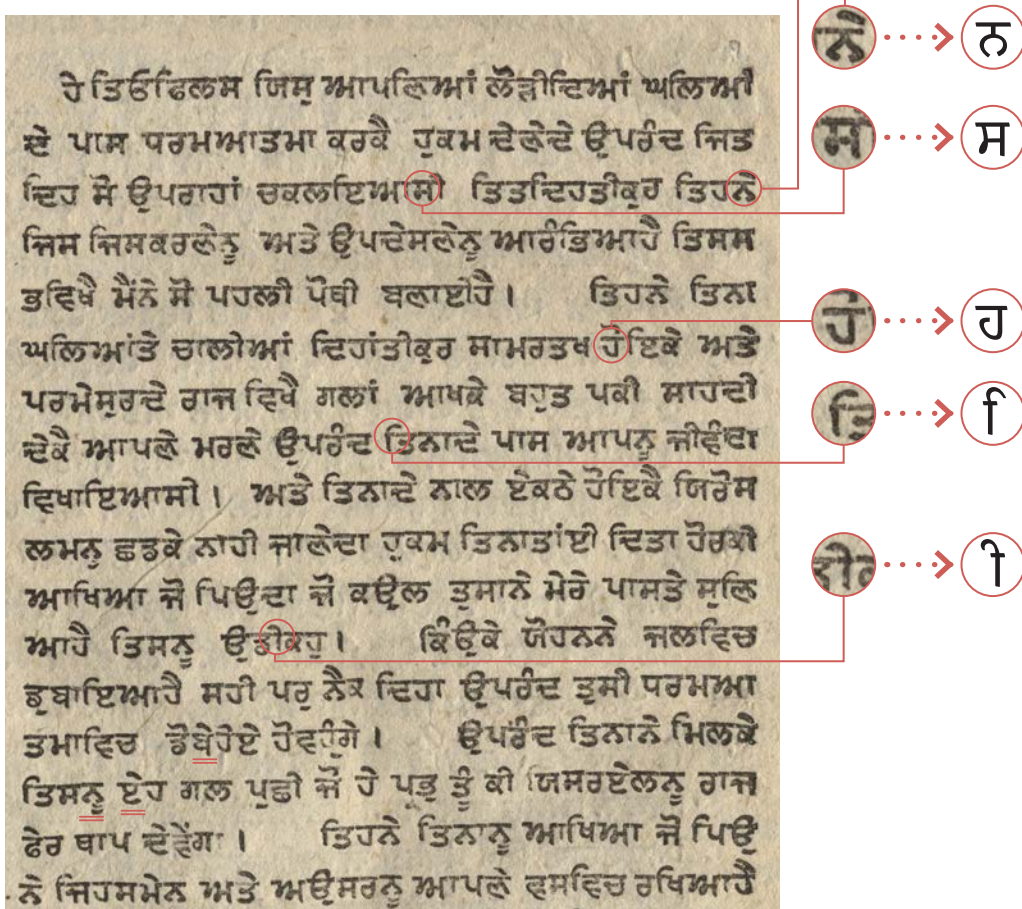 ਹੇ ਤਿਓਫਿਲਸ ਜਿਸੁ ਆਪਣਿਆਂ ਲੌੜੀਦਿਆਂ ਘਲਿਆਂ
ਦੇ ਪਾਸ ਧਰਮਆਤਮਾ ਕਰਕੈ ਹੁਕਮ ਦੇਣੇਦੇ ਉਪਰੰਦ ਜਿਤ
ਦਿਹ ਸੌ ਉਪਰਾਹਾਂ ਚਕਲਇਆਸੀ ਤਿਤਦਿਹਤੀਕੁਰ ਤਿਹਨੇ
ਜਿਸ ਜਿਸਕਰਣੇਨੂ ਅਤੇ ਉਪਦੇਸਣੇਨੂ ਆਰੰਭਿਆਹੈ ਤਿਸਸ
ਭਵਿਖੈ ਮੈਂਨੇ ਸੌ ਪਹਲੀ ਪੌਥੀ ਬਣਾਈਹੈ। ਤਿਹਨੇ ਤਿਨਾ
ਘਲਿਆਂਤੇ ਚਾਲੀਆਂ ਦਿਹਾਂਤੀਕੁਰ ਸਾਮਰਤਖ ਹੋਇਕੇ ਅਤੇ
ਪਰਮੇਸੁਰਦੇ ਰਾਜ ਵਿਖੈ ਗਲਾਂ ਆਖਕੇ ਬਹੁਤ ਪਕੀ ਸਾਹਦੀ
ਦੇਕੈ ਆਪਣੇ ਮਰਣੇ ਉਪਰੰਦ ਤਿਨਾਦੇ ਪਾਸ ਆਪਨੂ ਜੀਵੰਦਾ
ਵਿਖਾਇਆਸੀ। ਅਤੇ ਤਿਨਾਦੇ ਨਾਲ ਏਕਠੇ ਹੋਇਕੈ ਯਿਰੋਸ
ਲਮਨੂ ਛਡਕੇ ਨਾਹੀ ਜਾਣੇਦਾ ਹੁਕਮ ਤਿਨਾਤਾਂਈ ਦਿਤਾ ਹੋਰਕੀ
ਆਖਿਆ ਜੌ ਪਿਉਦਾ ਜੌ ਕਉਲ ਤੁਸਾਨੇ ਮੇਰੇ ਪਾਸਤੇ ਸੁਣਿ
ਆਹੈ ਤਿਸਨੂ ਉਡੀਕਹੁ। ਕਿੰਉਕੇ ਯੋਹਨਨੇ ਜਲਵਿਚ
ਡੁਬਾਇਆਹੈ ਸਹੀ ਪਰੁ ਨੈਕ ਦਿਹਾ ਉਪਰੰਦ ਤੁਸੀ ਧਰਮਆ
ਤਮਾਵਿਚ ਡੋਬੇਹੋਏ ਹੋਵਹੁੰਗੇ। ਉਪਰੰਦ ਤਿਨਾਨੇ ਮਿਲਕੇ
ਤਿਸਨੂ ਏਹ ਗਲ ਪੁਛੀ ਜੌ ਹੇ ਪ੍ਰਭੁ ਤੂੰ ਕੀ ਯਿਸਰਏਲਨੂ ਰਾਜ
ਫੇਰ ਥਾਪ ਦੇਵੇਂਗਾ। ਤਿਹਨੇ ਤਿਨਾਨੂ ਆਖਿਆ ਜੌ ਪਿਉ
ਨੇ ਜਿਹਸਮੇਨ ਅਤੇ ਅਉਸਰਨੂ ਆਪਣੇ ਵਸਵਿਚ ਰਖਿਆਹੈ
ਨੇ ਨ
ਸੀ ਸ
ਹੋ ਹ
ਤਿ ਿ
ੀ ੀ